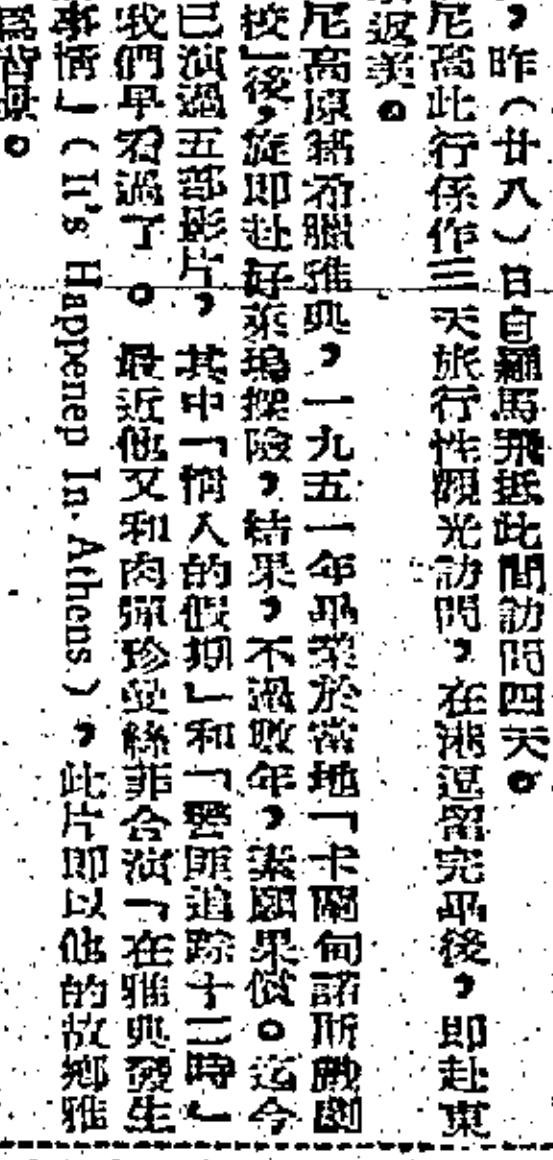 ，昨（廿八）日自羅馬飛抵此間訪問四天。
尼高此行係作三天旅行性觀光訪問，在港逗留完畢後，即赴東
返美。
尼高原籍希臘雅典，一九五一年畢業於當地「卡爾甸諾斯戲劇
校」後，旋即赴好萊塢探險，結果，不過數年，素願果償。迄今
已演過五部影片，其中「情人的假期」和「警匪追踪十二時」
我們早看過了。最近他又和肉彈珍茵絲菲合演「在雅典發生
事情」（It's Happenep In Athens），此片即以他的故鄉雅
爲背景。